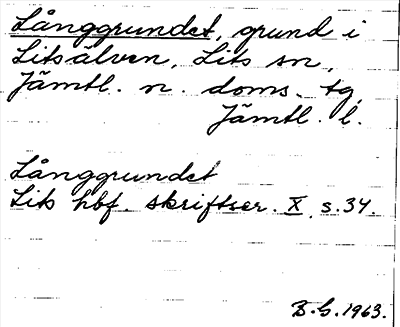 Långgrundet, grund i
Litsälven, Lits sn,
Jämtl. n. doms. tg,
Jämtl. l.
Långgrundet
Lits hbf. skriftser. X, s. 34.
B.G. 1963.